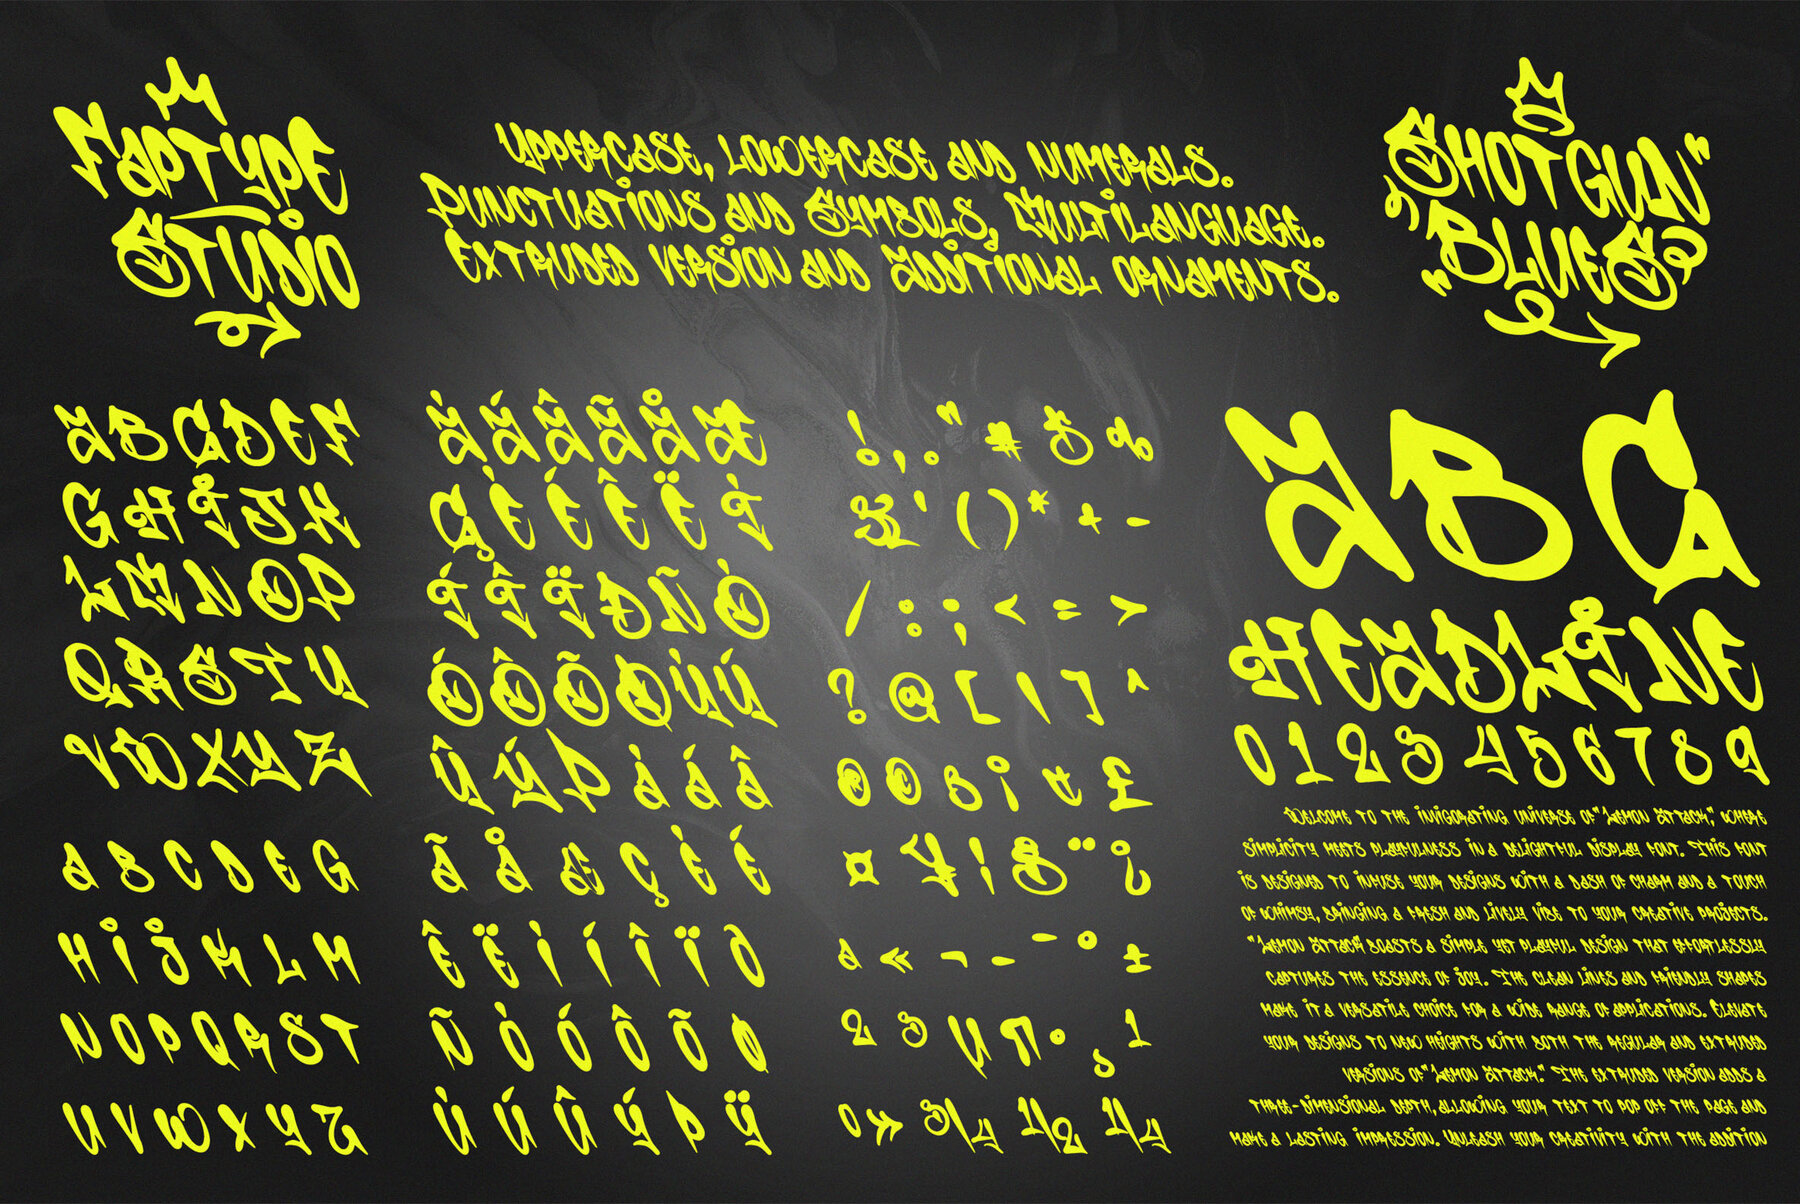 Faptype
Studio
Uppercase, lowercase and numerals.
Punctuations and Symbols, Multilanguage.
Extruded version and Additional ornaments.
"Shotgun"
"Blues"
A B C D E F
G H I J K
L M N O P
Q R S T U
V W X Y Z
a b c d e g
h i j k l m
n o p q r s t
u v w x y z
À Á Â Ã Å Æ
Ç È É Ê Ë Ì
Í Î Ï Ð Ñ Ò
Ó Ô Õ Ø Ù Ú
Û Ý Þ à á â
ã å æ ç è é
ê ë ì í î ï ð
ñ ò ó ô õ ø
ù ú û ý þ ÿ
! , . " # $ %
& ' ( ) * + -
/ : ; < = >
? @ [ | ] ^
® © ß ¡ ¢ £
¤ ¥ ¦ § ¨ ¿
ª « ¬ - ¯ ° ±
² ³ µ ¶ · ¸ ¹
º » ¾ ½ ¼
A B C
HEADLINE
0 1 2 3 4 5 6 7 8 9
Welcome to the invigorating universe of "Lemon Attack", where
simplicity meets playfulness in a delightful display font. This font
is designed to infuse your designs with a dash of charm and a touch
of whimsy, bringing a fresh and lively vibe to your creative projects.
"Lemon Attack boasts a simple yet playful design that effortlessly
captures the essence of joy. The clean lines and friendly shapes
make it a versatile choice for a wide range of applications. Elevate
your designs to new heights with both the regular and extruded
versions of "Lemon Attack." The extruded version adds a
three-dimensional depth, allowing your text to pop off the page and
make a lasting impression. Unleash your creativity with the addition